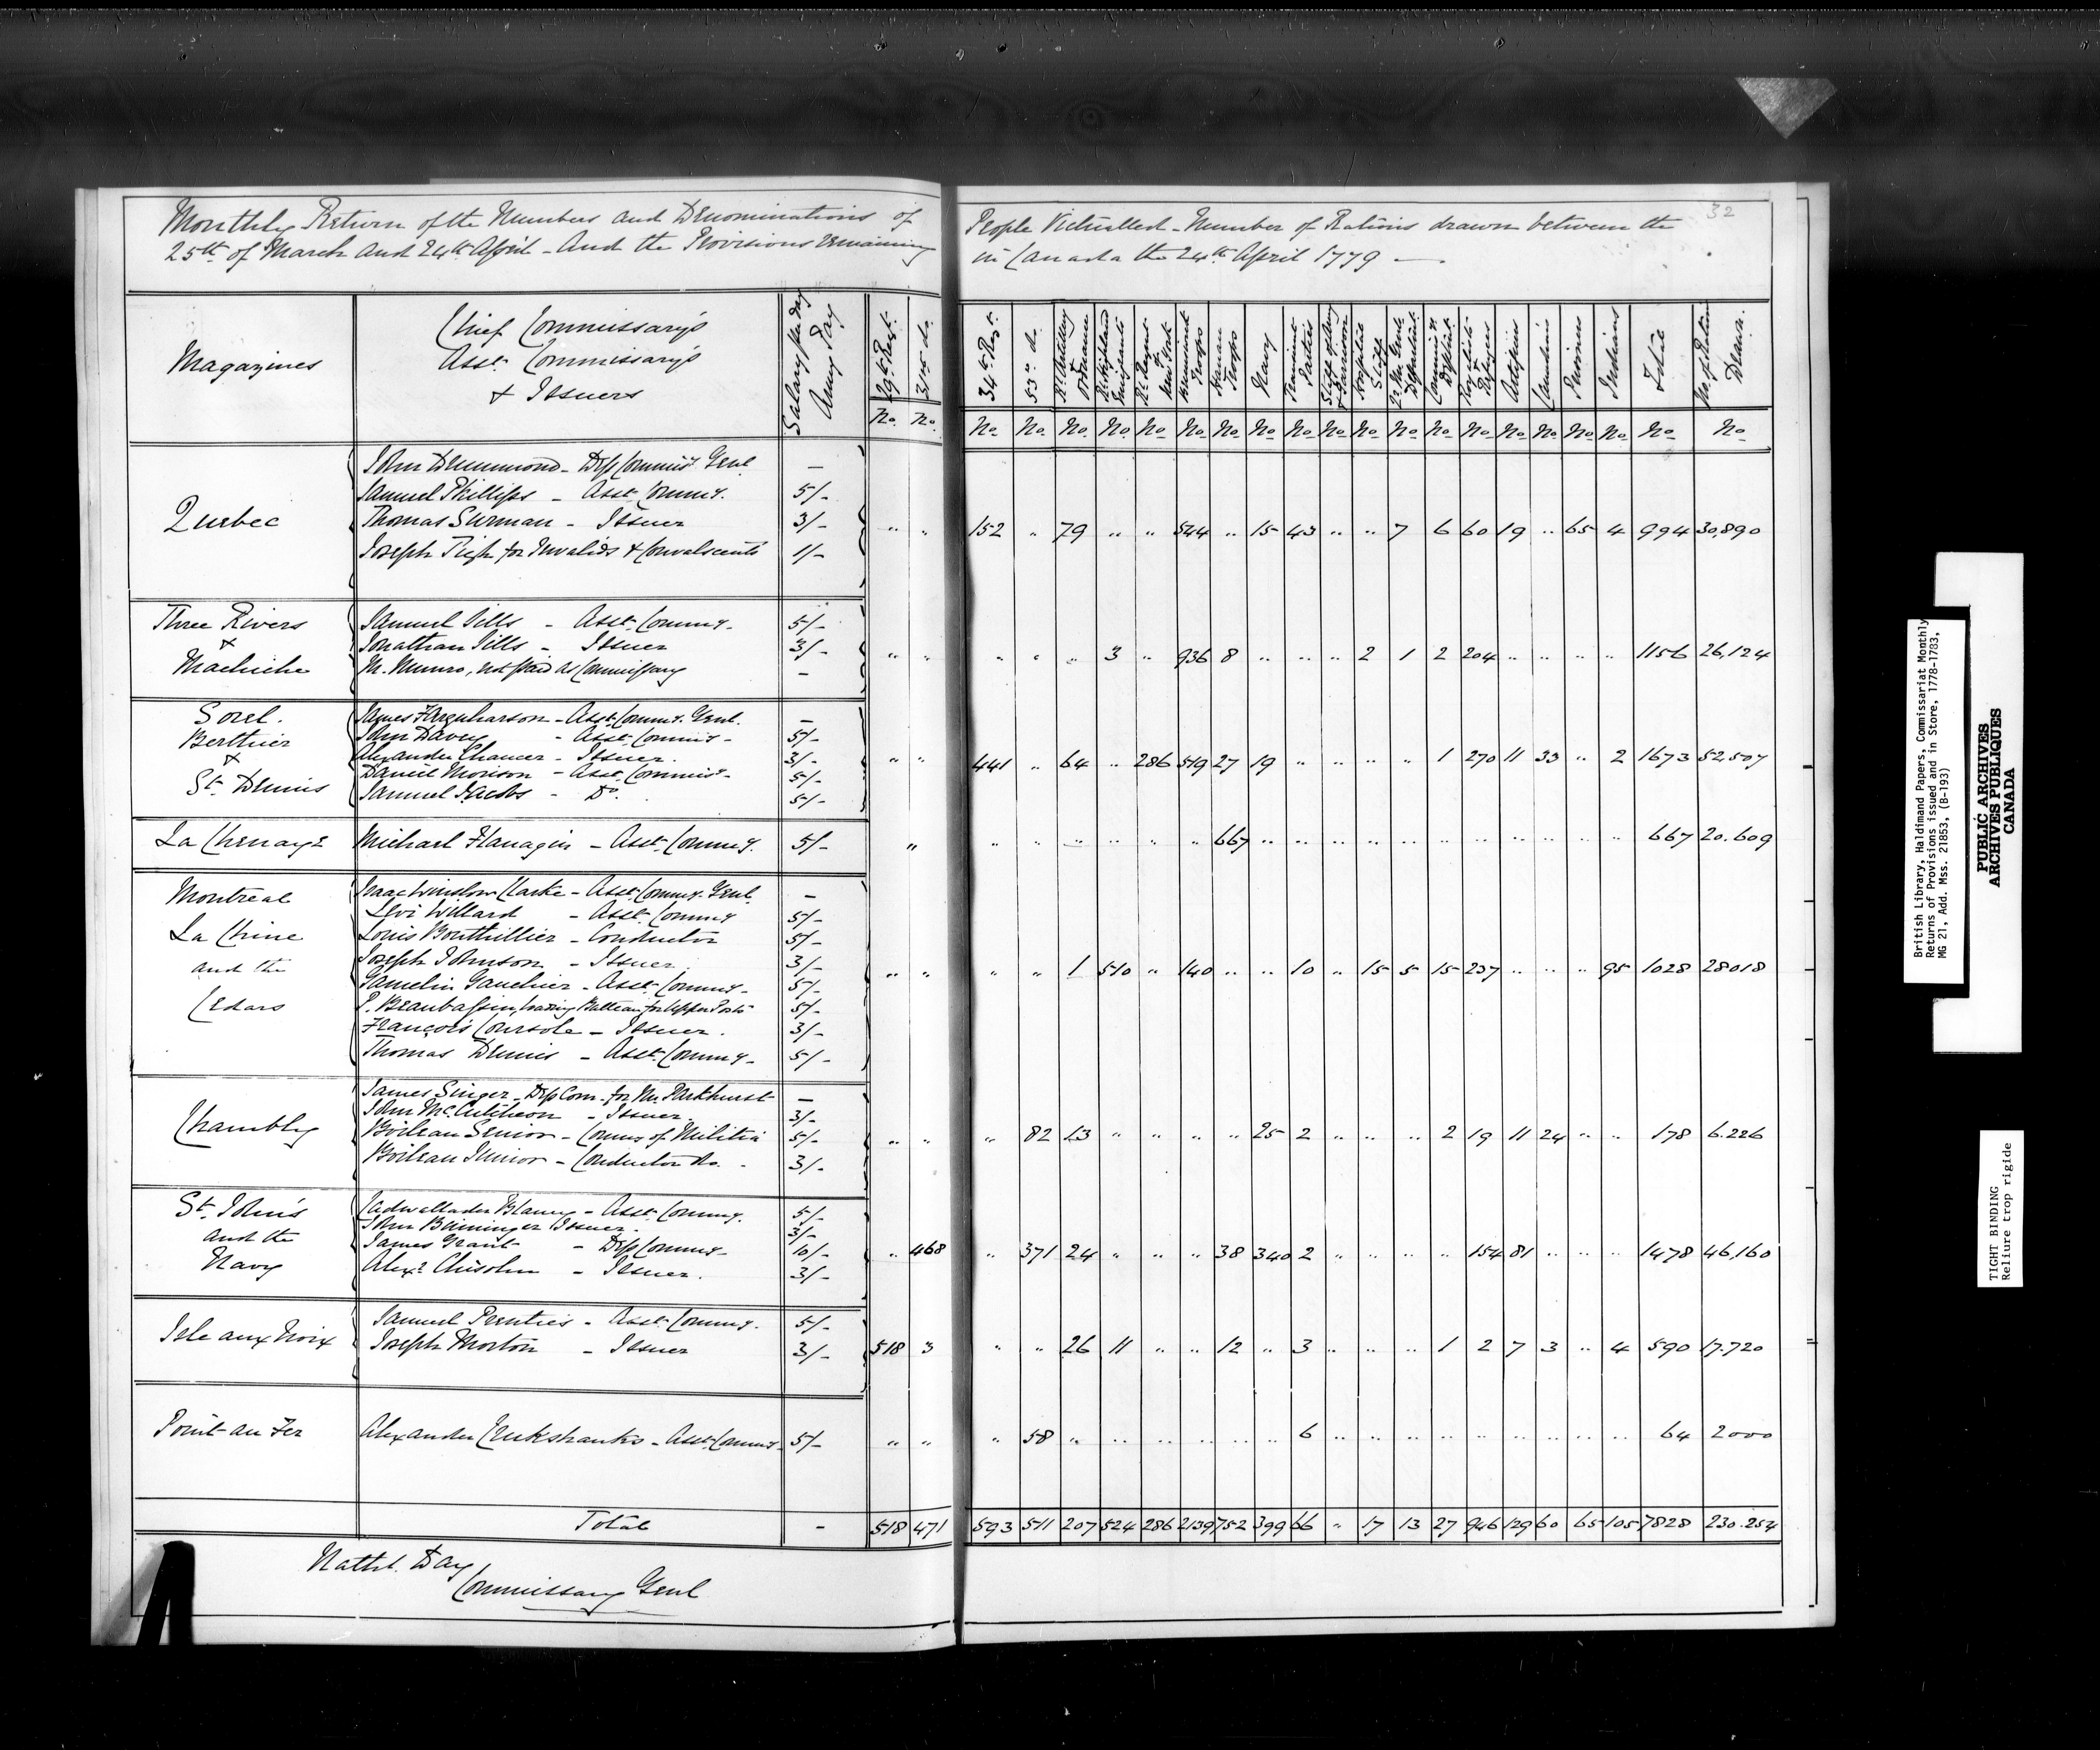 32
Monthly Return of the Numbers and Denominations of People Victualled - Number of Rations drawn between the
25th of March and 24th April - And the Provisions remaining in Canada the 24th April 1779 —
Magazines
Chief Commissary's
Asst. Commissary's
& Issuers
Salary per day
Army Pay
29th Regt. 31st do. 34th Regt. 53rd do. Rl. Artillery & Ordnance Rl. Highland Emigrants Rl. Regmt New York Brunswick Troops Hanau Troops Navy Transient Parties Staff of Army & Garrison Hospital Staff Qr. Mr. Genls Department Commissys Departmt. Royalists & Refugees Artificers Canadians Prisoners Indians Total No. of Rations Drawn.
No. No. No. No. No. No. No. No. No. No. No. No. No. No. No. No. No. No. No. No. No. No.
Quebec
John Drummond - Dep Commiss. Genl. —
Samuel Phillips - Asst. Commy. 5/-
Thomas Surman - Issuer 3/-
Joseph Tigh for Invalids & Convalscents 1/-
" " 152 " 79 " " 544 " 15 43 " " 7 6 60 19 " 65 4 994 30,890
Three Rivers
&
Machiche
Samuel Sills - Asst. Commy. 5/-
Jonathan Sills - Issuer 3/-
M. Munro, not paid as Commissary —
" " " " " 3 " 936 8 " " " 2 1 2 204 " " " " 1156 26,124
Sorel.
Berthier
&
St. Dennis
James Farquharson - Asst. Commy. Genl. —
John Davey - Asst. Commis - 5/-
Alexander Chancer - Issuer. 3/-
Daniel Morison - Asst. Commiss - 5/-
Samuel Jacobs - Do. 5/-
" " 441 " 64 " 286 519 27 19 " " " " 1 270 11 33 " 2 1673 52,507
La Chenaye
Michael Flanagin - Asst. Commy. 5/-
" " " " " " " 667 " " " " " " " " " " " 667 20.609
Montreal
La Chine
and the
Cedars
Isaac Winslow Clarke - Asst. Commy. Genl. —
Levi Willard - Asst. Commy 5/-
Louis Bouthillier - Conductor 5/-
Joseph Johnson - Issuer. 3/-
Gamelin Gauchier - Asst. Commy - 5/-
P. Beaubassin, loading Batteau for Upper Posts 5/-
François Coursole - Issuer. 3/-
Thomas Dennis - Asst. Commy - 5/-
" " " " 1 510 " 140 " " 10 " 15 5 15 237 " " " 95 1028 28018
Chambly
James Singer - Dep Com. for Mr. Parkhurst —
John McCutcheon - Issuer. 3/-
Boileau Senior - Commy of Militia 5/-
Boileau Junior - Conductor do. 3/-
" " " 82 13 " " " " 25 2 " " " 2 19 11 24 " " 178 6.226
St. John's
and the
Navy
Cadwallader Blaney - Asst. Commy. 5/-
John Beininger Issuer. 3/-
James Grant - Dep Commy - 10/-
Alexr. Chisolm - Issuer. 3/-
" 468 " 371 24 " " " 38 340 2 " " " " 154 81 " " " 1478 46,160
Isle aux Noix
Samuel Prenties - Asst. Commy. 5/-
Joseph Morton - Issuer 3/-
518 3 " " 26 11 " " 12 " 3 " " " 1 2 7 3 " 4 590 17.720
Point au Fer
Alexander Cruikshanks - Asst. Commy - 5/-
" " " 58 " " " " " " 6 " " " " " " " " " 64 2000
Total - 518 471 593 511 207 524 286 2139 752 399 66 " 17 13 27 946 129 60 65 105 7828 230.254
Nathl. Day
Commissary Genl
British Library, Haldimand Papers, Commissariat Monthly
Returns of Provisions issued and in Store, 1778-1783,
MG 21, Add. Mss. 21853, (B-193)
PUBLIC ARCHIVES
ARCHIVES PUBLIQUES
CANADA
TIGHT BINDING
Reliure trop rigide